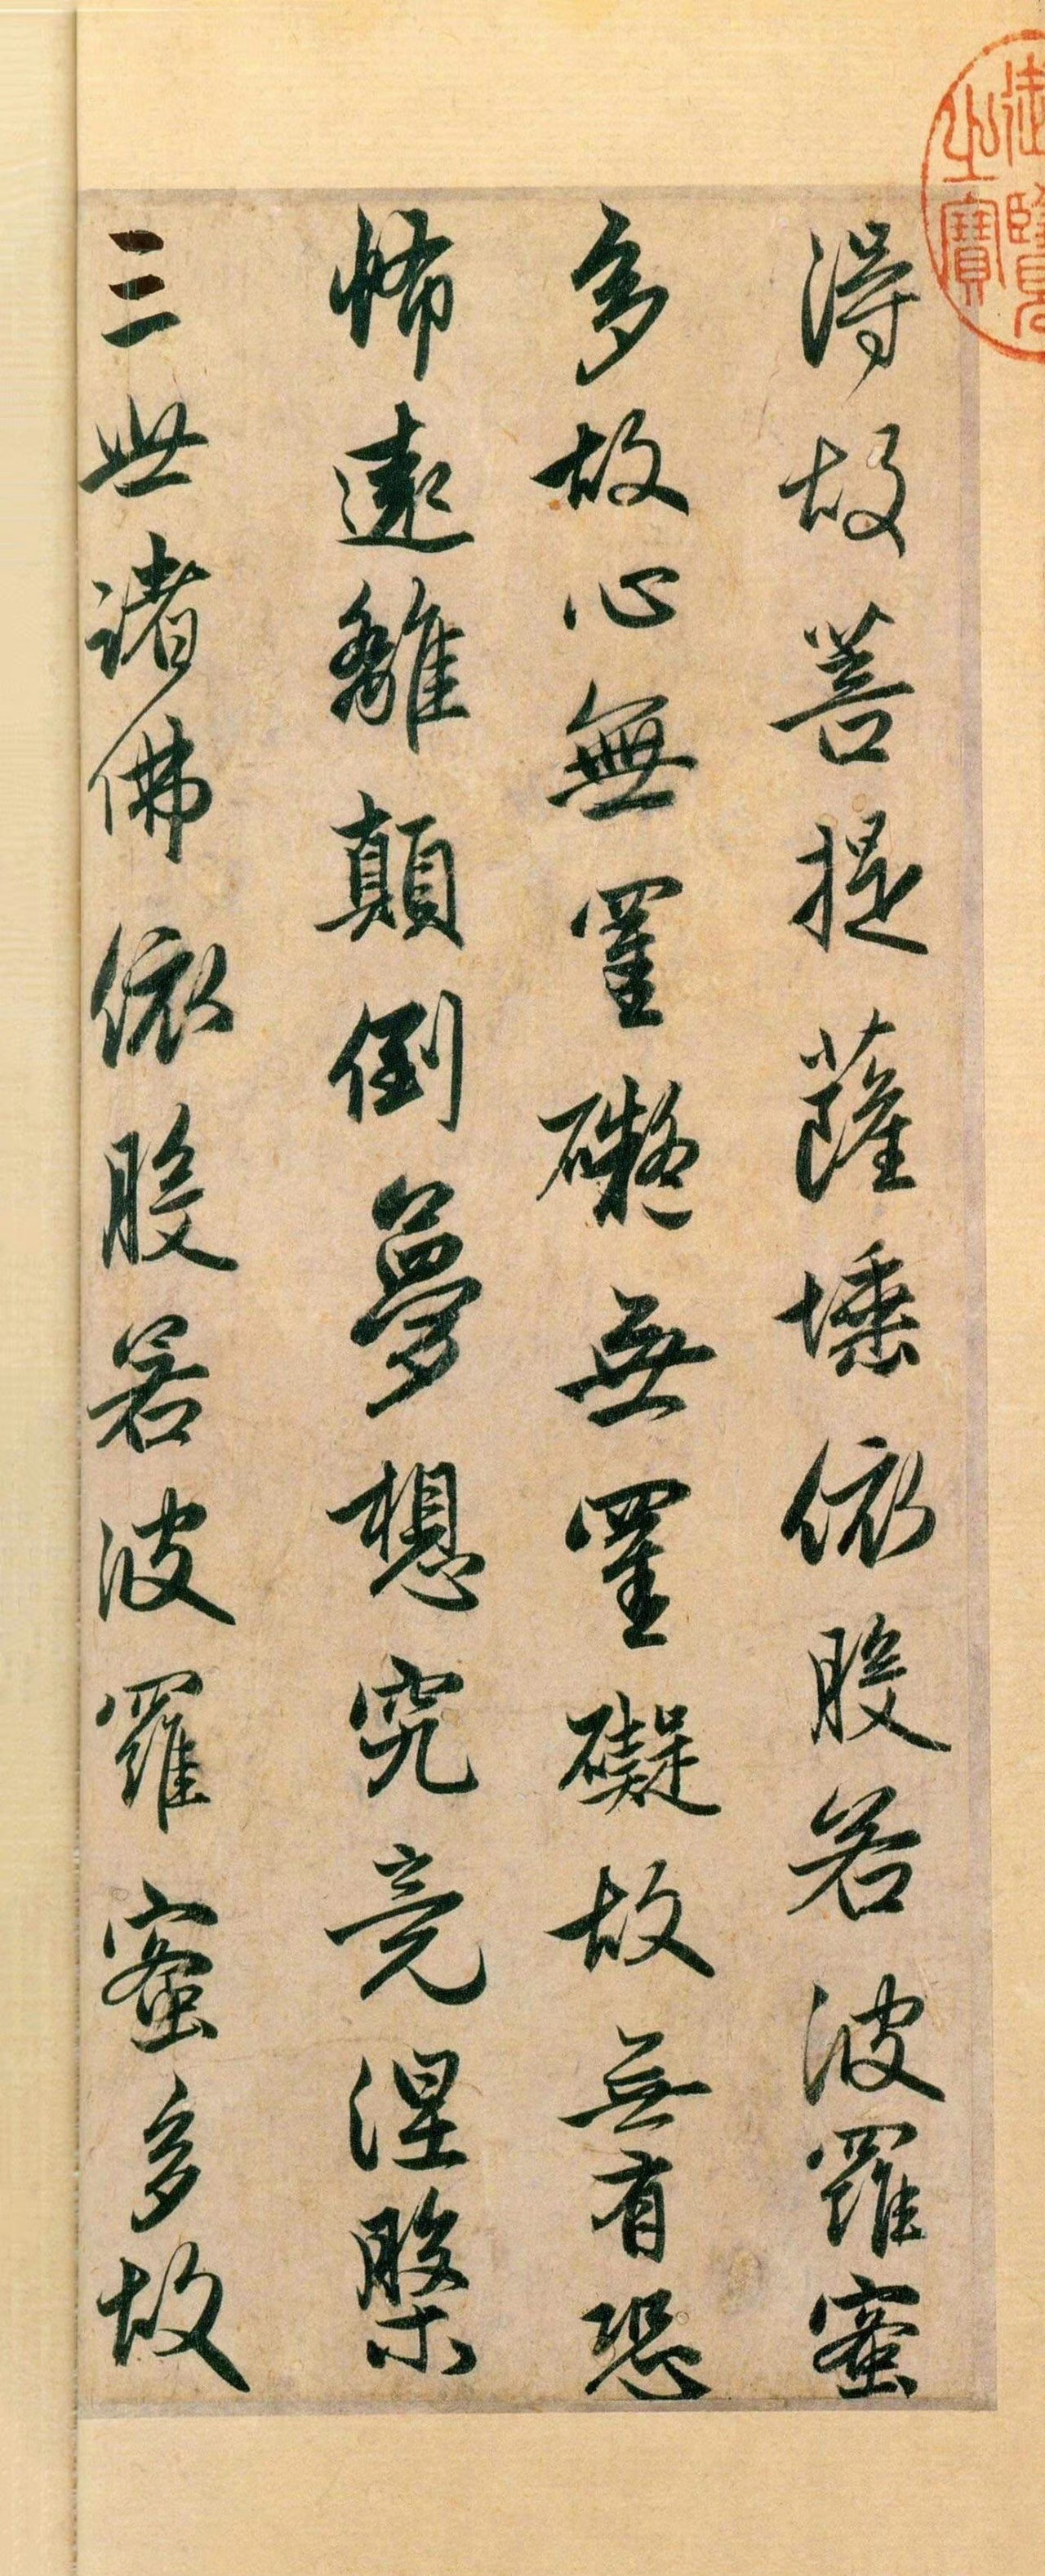 御覽之寶
得故菩提薩埵依般若波羅蜜
多故心無罣礙無罣礙故無有恐
怖遠離顛倒夢想究竟涅槃
三世諸佛依般若波羅蜜多故